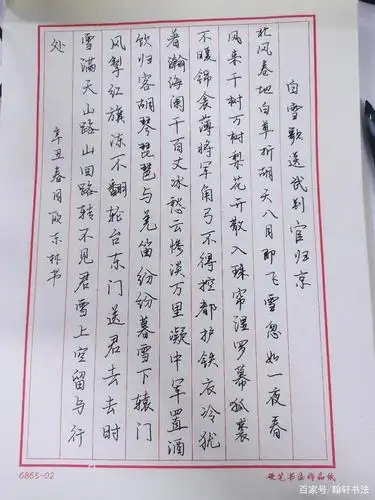 白雪歌送武判官归京
北风卷地白草折胡天八月即飞雪忽如一夜春
风来千树万树梨花开散入珠帘湿罗幕狐裘
不暖锦衾薄将军角弓不得控都护铁衣冷犹
着瀚海阑干百丈冰愁云惨淡万里凝中军置酒
饮归客胡琴琵琶与羌笛纷纷暮雪下辕门
风掣红旗冻不翻轮台东门送君去去时
雪满天山路山回路转不见君雪上空留马行
处
辛丑春月欧东林书
6865-02
硬笔书法作品纸
百家号/翰轩书法